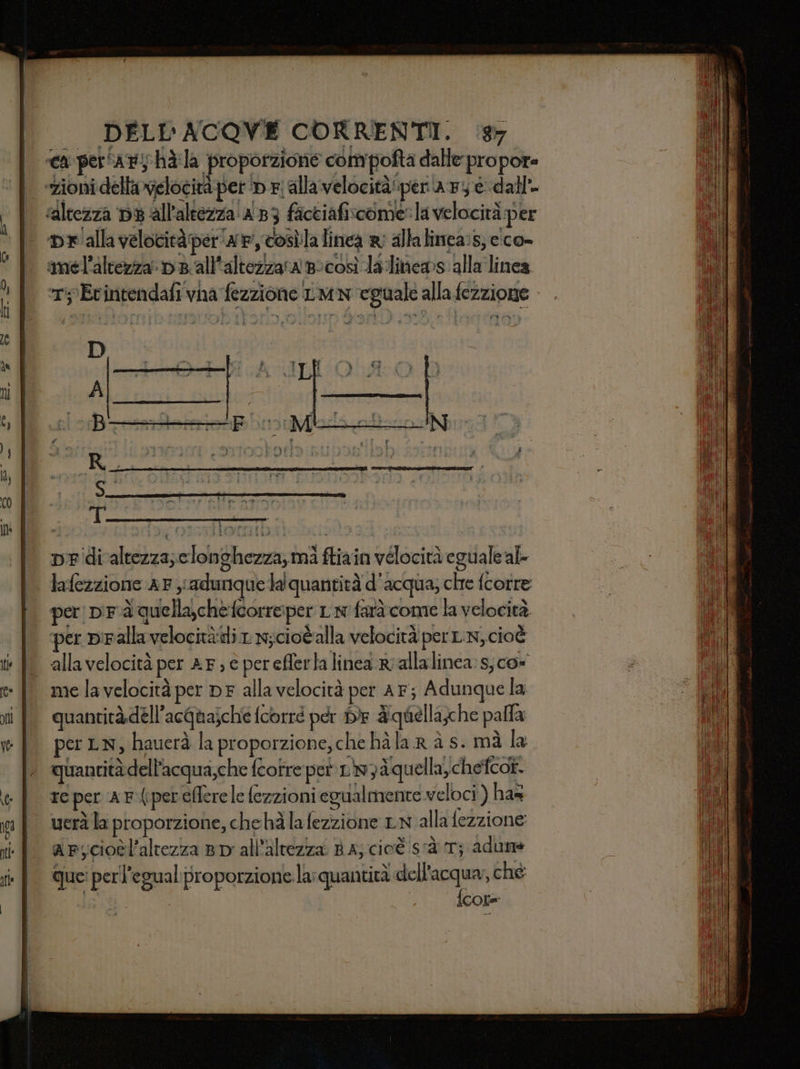 DELL' ACQVE CORRENTI. 87
ca per AF; hà la proporzione compoſta dalle propor-
zioni della velocità per D F; alla velocità per A F; e dall'-
altezza DB all'altezza A B; facciaſi come la velocità per
DF alla velocità per AF, così la linea R alla linea s, e co-
me l'altezza D B all'altezza A B così la linea s alla linea
T; Et intendaſi vna ſezzione L M N eguale alla ſezzione
D
L
A
B F M N
R
S
T
DF di altezza, e longhezza, mà ſtia in velocità eguale al-
la ſezzione AF, adunque la quantità d'acqua, che ſcorre
per DF à quella, che ſcorre per L N ſarà come la velocità
per DF alla velocità di L N; cioè alla velocità per L N, cioè
alla velocità per AF, e per eſſer la linea R alla linea s, co-
me la velocità per DF alla velocità per AF; Adunque la
quantità dell'acqua, che ſcorre per DF à quella, che paſſa
per LN, hauerà la proporzione, che hà la R à s. mà la
quantità dell'acqua, che ſcorre per L N, à quella, che ſcor-
re per AF (per eſſere le ſezzioni egualmente veloci) ha-
uerà la proporzione, che hà la ſezzione LN alla ſezzione
AF, cioè l'altezza BD all'altezza BA, cioè s à T; adun-
que per l'egual proporzione la quantità dell'acqua, che
ſcor-